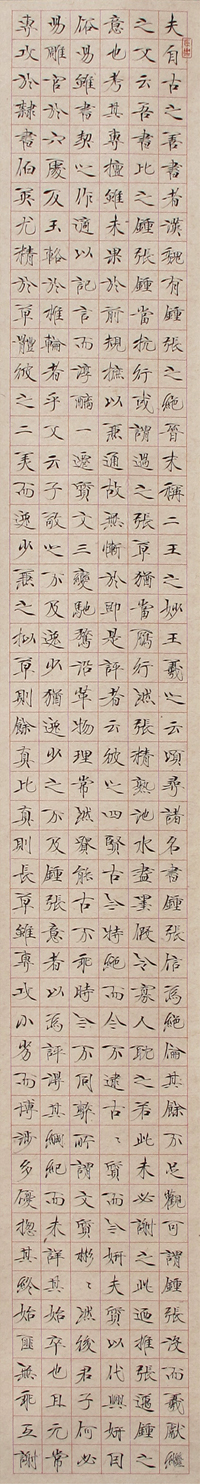 夫自古之善書者漢魏有鍾張之絕晉末稱二王之妙王羲之云頃尋諸名書鍾張信為絕倫其餘不足觀可謂鍾張沒而羲獻繼
之又云吾書比之鍾張鍾當抗行或謂過之張草猶當雁行然張精熟池水盡墨假令寡人耽之若此未必謝之此乃推張邁鍾之
意也考其專擅雖未果於前規摭以兼通故無慚於即是評者云彼之四賢古今特絕而今不逮古〻質而今妍夫質以代興妍因
俗易雖書契之作適以記言而淳醨一遷質文三變馳騖沿革物理常然貴能古不乖時今不同弊所謂文質彬〻然後君子何必
易雕宮於穴處反玉輅於椎輪者乎又云子敬之不及逸少猶逸少之不及鍾張意者以為評得其綱紀而未詳其始卒也且元常
專攻於隸書伯英尤精於草體彼之二美而逸少兼之擬草則餘真比真則長草雖專攻小劣而博涉多優摠其終始匪無乖互謝